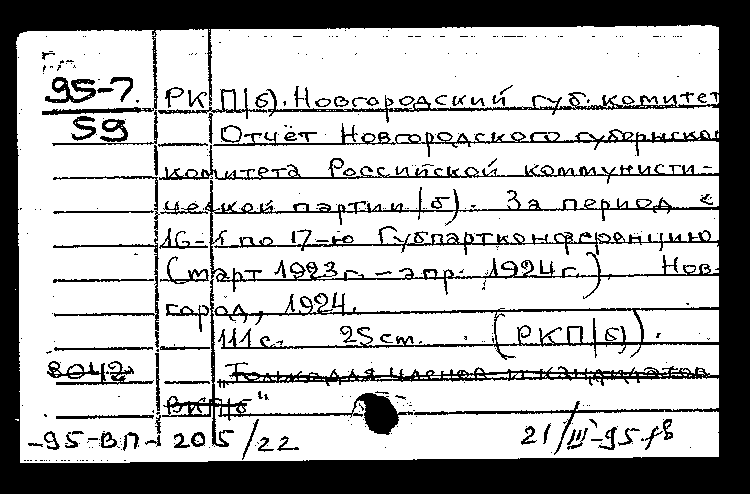 95-7
59
РКП(б). Новгородский губ. комитет
Отчёт Новгородского губернско
комитета Российской коммунисти-
ческой партии (б). За период с
16-й по 17-ю Губпартконференцию
(март 1923 г. – апр. 1924 г.). Нов-
город, 1924.
111 с. 25 см. (РКП(б)).
8042 „Только для членов и кандидатов
ВКПб"
-95-ВП- 205/22 21/III-95